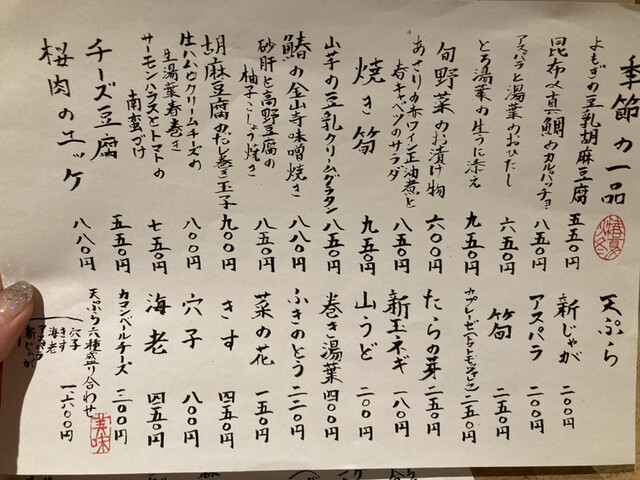 季節の一品
よもぎの豆乳胡麻豆腐 五五〇円
昆布〆真鯛のカルパッチョ 八五〇円
アスパラと湯葉のおひたし 六五〇円
とろ湯葉の生うに添え 九五〇円
旬野菜のお漬け物 六〇〇円
あさりの赤ワイン正油煮と
春キャベツのサラダ 八五〇円
焼き筍 九五〇円
山芋の豆乳クリームグラタン 八五〇円
鰆の金山寺味噌焼き 八八〇円
砂肝と高野豆腐の
柚子こしょう焼き 八五〇円
胡麻豆腐のだし巻き玉子 九〇〇円
生ハムとクリームチーズの
生湯葉春巻き 八〇〇円
サーモンハラスとトマトの
南蛮づけ 七五〇円
チーズ豆腐 五五〇円
桜肉のユッケ 八八〇円
天ぷら
新じゃが 二〇〇円
アスパラ 二五〇円
筍 二五〇円
カプレーゼ 二五〇円
たらの芽 二五〇円
新玉ネギ 一八〇円
山うど 二〇〇円
巻き湯葉 四〇〇円
ふきのとう 二二〇円
菜の花 一五〇円
きす 四五〇円
穴子 八〇〇円
海老 四五〇円
カマンベールチーズ 三〇〇円
天ぷら六種盛り合わせ 一、六〇〇円
穴子
きす
海老
アスパラ
新じゃが
美味